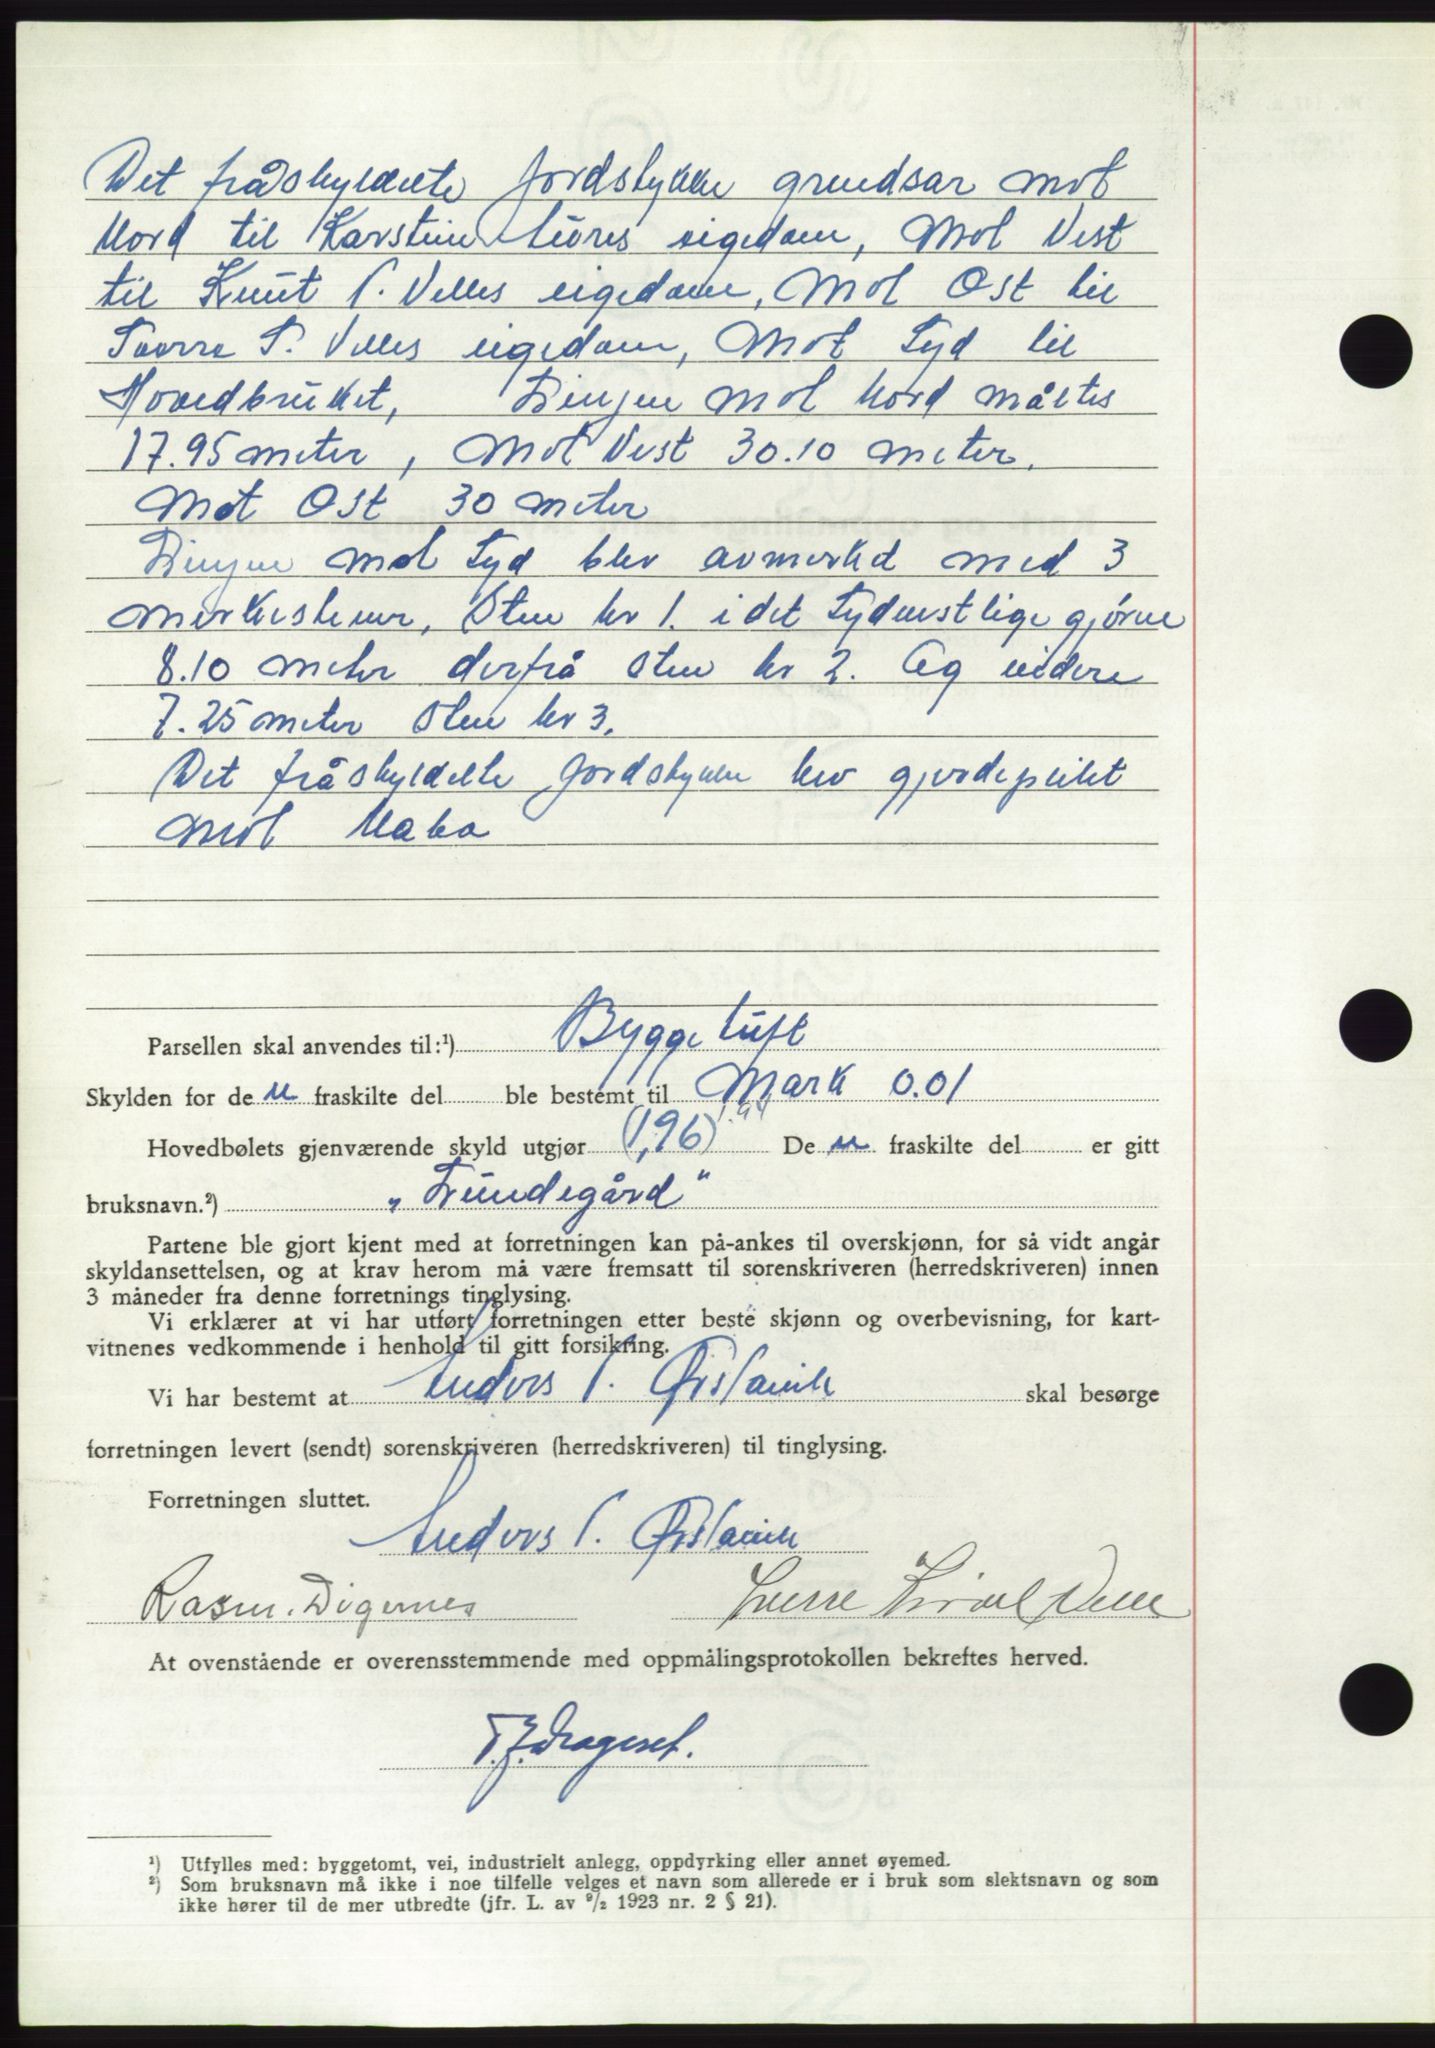 Det fråskyldelte Jordstykke grendsar mot
Nord til Karstein Lures eigedom, Mot Vest
til Knut P. Velles eigedom, Mot Ost til
Sverre P. Velles eigedom, Mot Syd til
Hovedbruket, Linjen mot Nord måltes
17.95 meter, Mot Vest 30.10 meter.
Mot Ost 30 meter
Linjen mot Syd blev avmerked med 3
merkestener, Sten nr 1. i det Sydvestlige gjørne
8.10 meter derfrå sten nr 2. Og videre
7.25 meter sten nr 3.
Det fråskyldelte Jordstykke hev gjerdeplikt
mot Nabo
Parsellen skal anvendes til:¹) Bygge tuft
Skylden for de n fraskilte del ble bestemt til Mark 0.01
Hovedbølets gjenværende skyld utgjør (1,96) 1.94 De n fraskilte del er gitt
bruksnavn.²) „Lundegård"
Partene ble gjort kjent med at forretningen kan på-ankes til overskjønn, for så vidt angår
skyldansettelsen, og at krav herom må være fremsatt til sorenskriveren (herredskriveren) innen
3 måneder fra denne forretnings tinglysing.
Vi erklærer at vi har utført forretningen etter beste skjønn og overbevisning, for kart-
vitnenes vedkommende i henhold til gitt forsikring.
Vi har bestemt at Anders P. Ørstavik skal besørge
forretningen levert (sendt) sorenskriveren (herredskriveren) til tinglysing.
Forretningen sluttet.
Anders P. Ørstavik
Rasm. Digernes Sverre Knutsen Velle
At ovenstående er overensstemmende med oppmålingsprotokollen bekreftes herved.
P.J. Drageset.
¹) Utfylles med: byggetomt, vei, industrielt anlegg, oppdyrking eller annet øyemed.
²) Som bruksnavn må ikke i noe tilfelle velges et navn som allerede er i bruk som slektsnavn og som
ikke hører til de mer utbredte (jfr. L. av ⁹/₂ 1923 nr. 2 § 21).